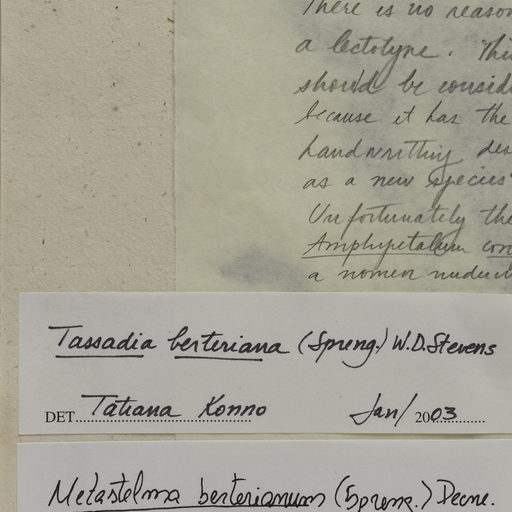 There is no reason
a lectotype. This
should be conside
because it has the
handwritting des
as a new species"
Unfortunately the
Amphypetalum con
a nomen nudum
Tassadia berteriana (Spreng.) W.D.Stevens
DET. Tatiana Konno Jan/ 2003
Metastelma berterianum (Spreng.) Decne.